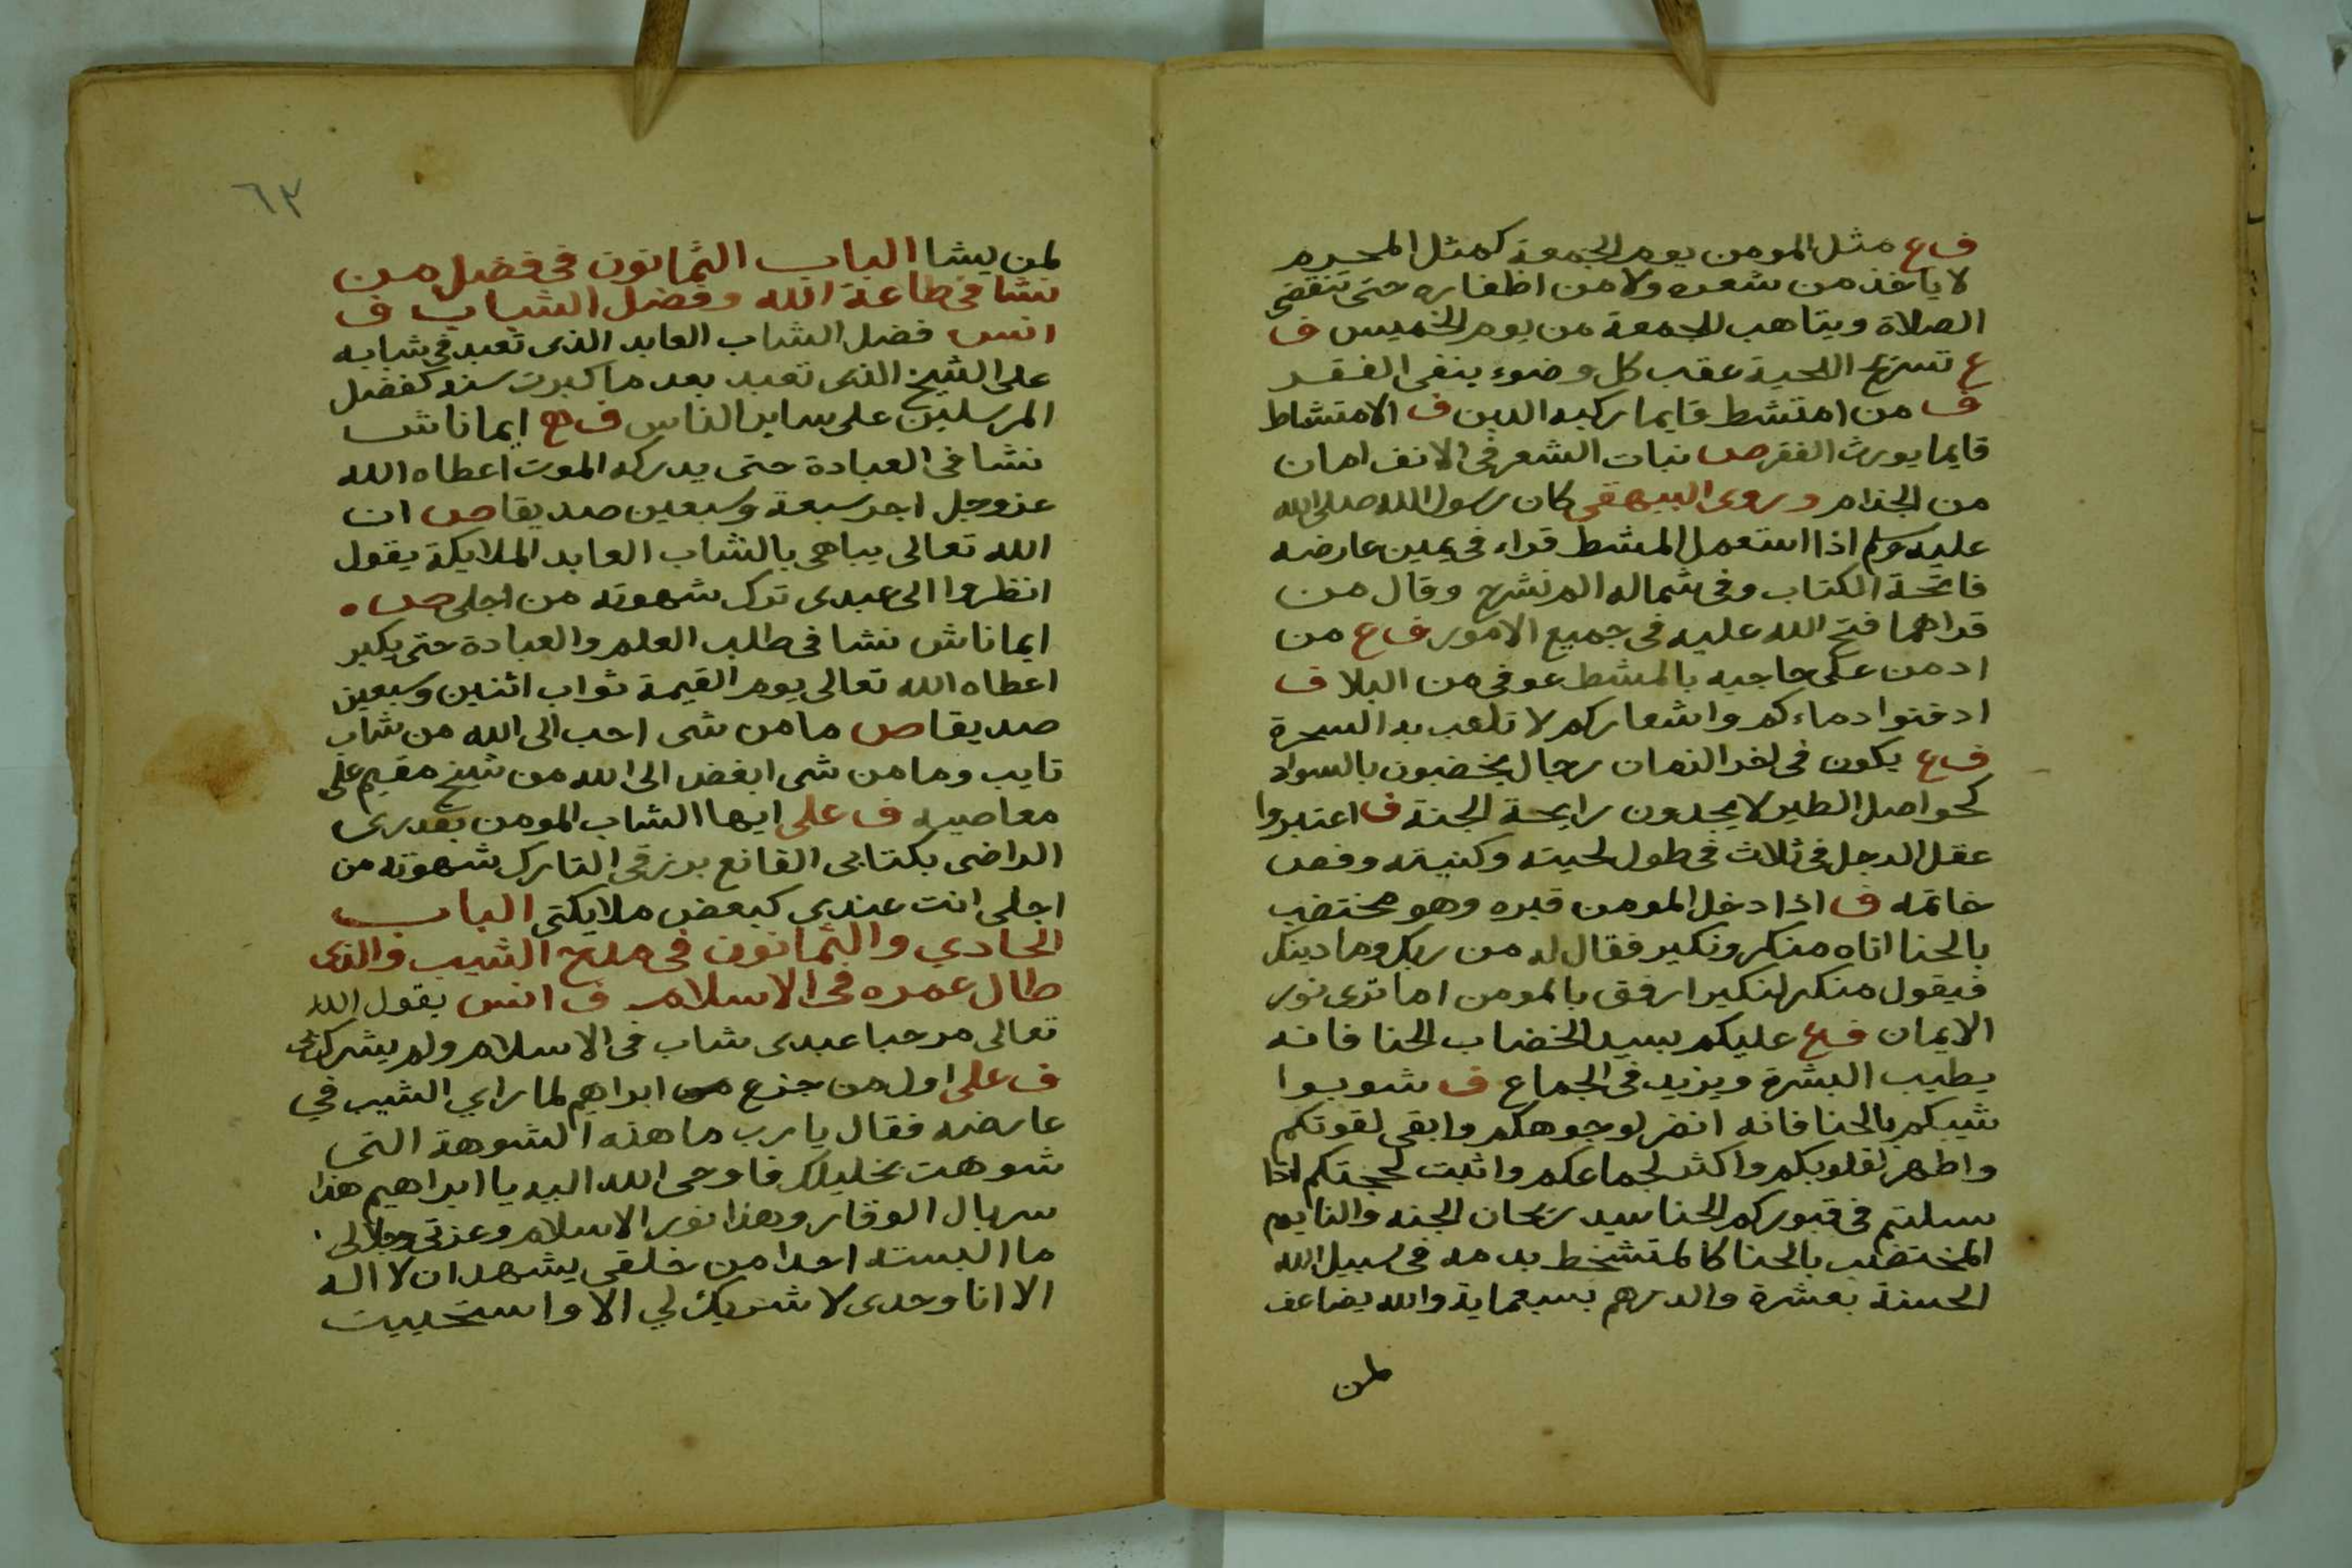 ف ع مثل المومن يوم الجمعة كمثل المحرم
لا ياخذ من شعره ولا من اظفاره حتى تنقضى
الصلاة ويتاهب للجمعة من يوم الخميس ف
ع تسريح اللحية عقب كل وضوء ينفى الفقر
ف من امتشط قايما ركبه الدين ف الامتشاط
قايما يورث الفقر ص نبات الشعر فى الانف امان
من الجذام وروى البيهقى كان رسول الله صلى الله
عليه وسلم اذا استعمل المشط قراء فى يمين عارضه
فاتحة الكتاب وفى شماله الم نشرح وقال من
قراهما فتح الله عليه فى جميع الامور ف ع من
ادمن على حاجبيه بالمشط عوفى من البلا ف
ادفنوا دماءكم واشعاركم لا تلعب به السحرة
ف ع يكون فى اخر الزمان رجال يخضبون بالسواد
كحواصل الطير لا يجدون رايحة الجنة ف اعتبروا
عقل الرجل فى ثلاث فى طول لحيته وكنيته وفص
خاتمه ف اذا دخل المومن قبره وهو مختضب
بالحنا اتاه منكر ونكير فقال له من ربك وما دينك
فيقول منكر لنكير ارفق بالمومن اما ترى نور
الايمان ف ع عليكم بسيد الخضاب الحنا فانه
يطيب البشرة ويزيد فى الجماع ف شوبوا
شيبكم بالحنا فانه انضر لوجوهكم وابقى لقوتكم
واطهر لقلوبكم واكثر لجماعكم واثبت لحجتكم اذا
سيلتم فى قبوركم الحنا سيد ريحان الجنه والنايم
المختضب بالحنا كالمتشخط بدمه فى سبيل الله
الحسنة بعشرة والدرهم بسبعماية والله يضاعف
لمن
٦٣
لمن يشا الباب الثمانون فى فضل من
نشا فى طاعة الله وفضل الشباب ف
انس فضل الشاب العابد الذى تعبد فى شبابه
على الشيخ الذى تعبد بعد ما كبرت سنه كفضل
المرسلين على ساير الناس ف ايما ناش
نشا فى العبادة حتى يدركه الموت اعطاه الله
عز وجل اجر سبعة وسبعين صديقا ص ان
الله تعالى يباهى بالشاب العابد الملايكة يقول
انظروا الى عبدى ترك شهوته من اجلى ص
ايما ناش نشا فى طلب العلم والعبادة حتى يكبر
اعطاه الله تعالى يوم القيمة ثواب اثنين وسبعين
صديقا ص ما من شى احب الى الله من شاب
تايب وما من شى ابغض الى الله من شيخ مقيم على
معاصيه ف على ايها الشاب المومن بقدرى
الراضى بكتابى القانع برزقى التارك شهوته من
اجلى انت عندى كبعض ملايكتى الباب
الحادي والثمانون فى مدح الشيب والذى
طال عمره فى الاسلام ف انس يقول الله
تعالى مرحبا عبدى شاب فى الاسلام ولم يشرك بى
ف على اول من جزع من ابراهيم لما راي الشيب في
عارضه فقال يا رب ما هذه الشوهة التى
شوهت بخليلك فاوحى الله اليه يا ابراهيم هذا
سربال الوقار وهذا نور الاسلام وعزتى وجلالى
ما البسته احدا من خلقى يشهد ان لا اله
الا انا وحدى لا شريك لي الا واستحييت